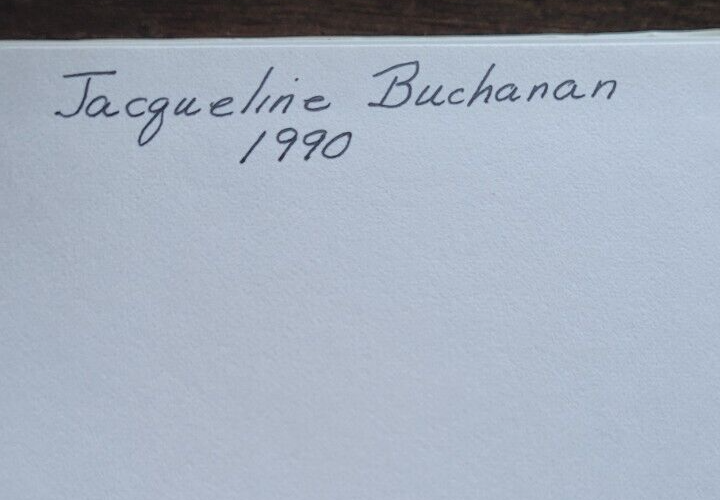 Jacqueline Buchanan
1990